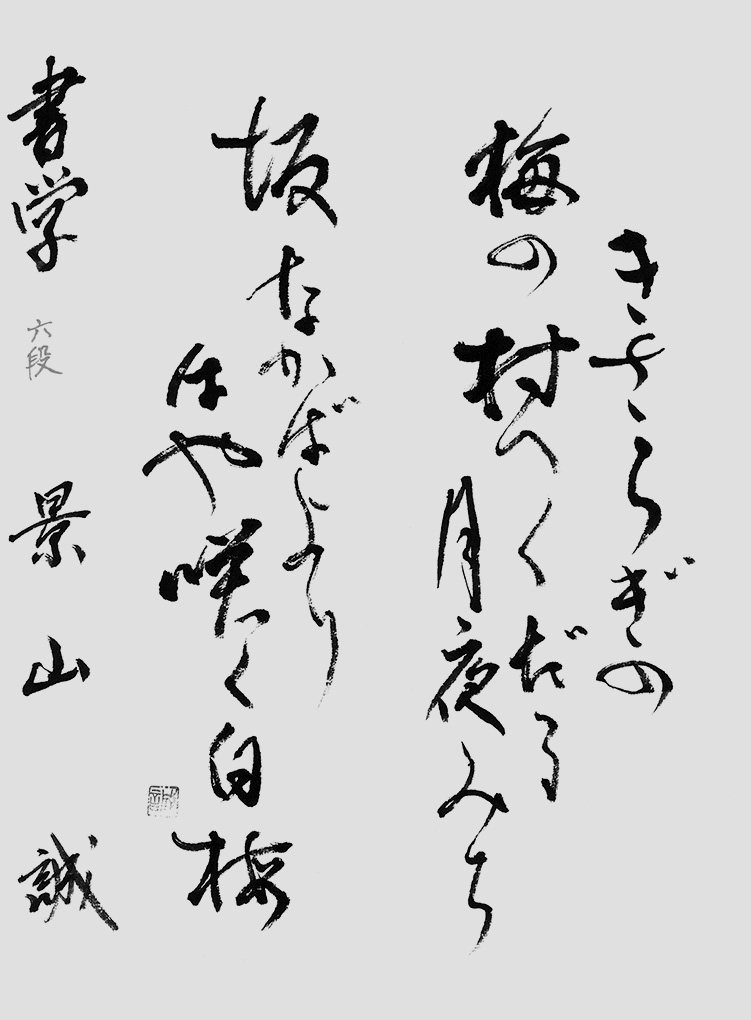 きさらぎの
梅の村へくだる
月夜みち
坂なかばより
はや咲く白梅
書学 六段 景山 誠